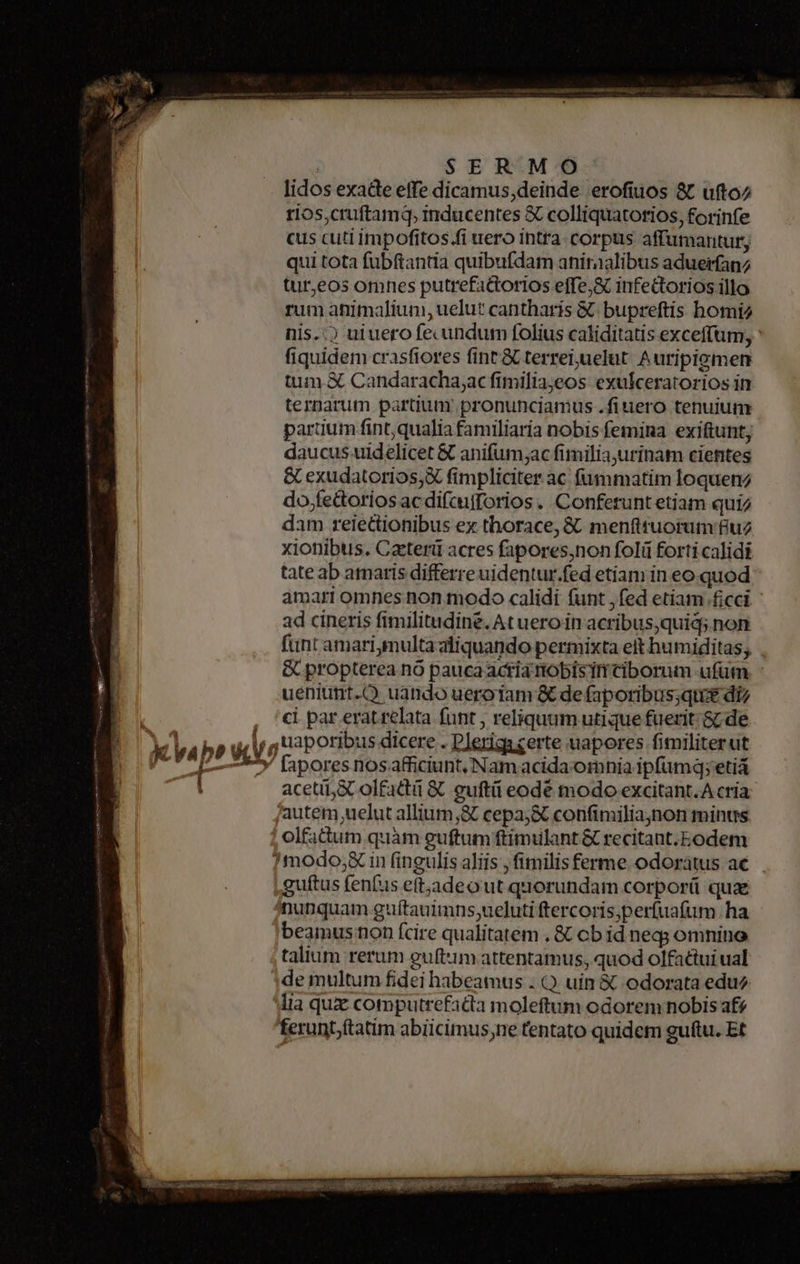 SERMO
lidos exacte esse dicamus,deinde erosiuos & usto⸗
rios,crustamq; inducentes & colliquatorios, forinse
cus cuti impositos.si uero intra corpus assumantur,
qui tota substantia quibusdam animalibus aduersan⸗
tur,eos omnes putrefactorios esse,& infectorios illo
rum animalium, uelut cantharis & buprestis homi⸗
nis. Q uiuero secundum solius caliditatis excessum,
siquidem crassiores sint & terrei,uelut Auripigmen
tum & Candaracha,ac similia,eos exulceratorios in
ternarum partium pronunciamus .si uero tenuium
partium sint,qualia familiaria nobis semina existunt,
daucus uidelicet & anisum,ac similia,urinam cientes
& exudatorios,& simpliciter ac summatim loquen⸗
do,sectorios ac discussorios. Conferunt etiam qui⸗
dam reiectionibus ex thorace, & menstruorum flu⸗
xionibus. Cæterū acres sapores,non solū forti calidi
tate ab amaris differre uidentur.sed etiam in eo quod
amari omnes non modo calidi sunt ,sed etiam sicci
ad cineris similitudinē. At uero in acribus,quiq; non
sunt amari,multa aliquando permixta est humiditas,
& propterea nō pauca acria nobis in ciborum usum
ueniunt. Q uando uero iam & de saporibus,quæ di⸗
ci par erat relata sunt , reliquum utique fuerit & de
uaporibus dicere . Pleriq; certe uapores similiter ut
sapores nos afficiunt. Nam acida omnia ipsumq; etiā
acetū,& olfactū & gustū eodē modo excitant. Acria
autem,uelut allium,& cepa,& consimilia,non minus
olfactum quàm gustum stimulant & recitant. Eodem
modo,& in singulis aliis , similis ferme odoratus ac
gustus sensus est,adeo ut quorundam corporū quæ
nunquam gustauimns,ueluti stercoris,persuasum ha
beamus non scire qualitatem . & ob id neq; omnino
talium rerum gustum attentamus, quod olfactui ual
de multum fidei habeamus . Q uin & odorata edu⸗
lia quæ computrefacta molestum odorem nobis af⸗
ferunt,statim abiicimus,ne tentato quidem gustu. Et